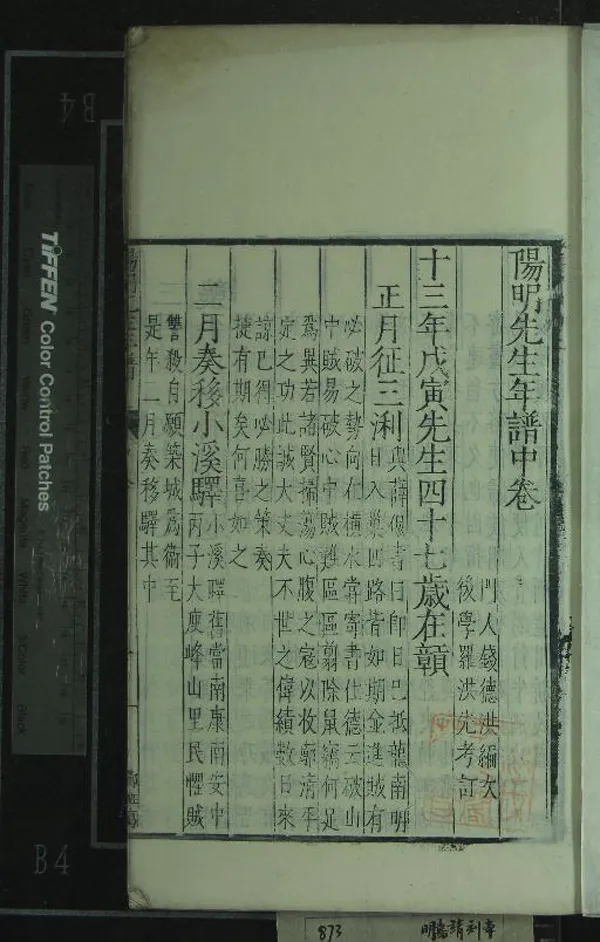 陽明先生年譜中卷
門人錢德洪編次
後學羅洪先考訂
十三年戊寅先生四十七歲在贛
正月征三浰
與薛侃書曰即日已抵龍南明
日入巢四路皆如期並進賊有
必破之勢向在橫水嘗寄書仕德云破山
中賊易破心中賊難區區翦除鼠竊何足
爲異若諸賢掃蕩心腹之寇以收廓清平
定之功此誠大丈夫不世之偉績數日來
諒已得必勝之策奏
捷有期矣何喜如之
二月奏移小溪驛
小溪驛舊當南康南安中
丙子大庾峰山里民懼賊
讐殺自願築城爲衞至
是年二月奏移驛其中
TIFFEN Color Control Patches
B4
B4
873
明嘉靖刻本